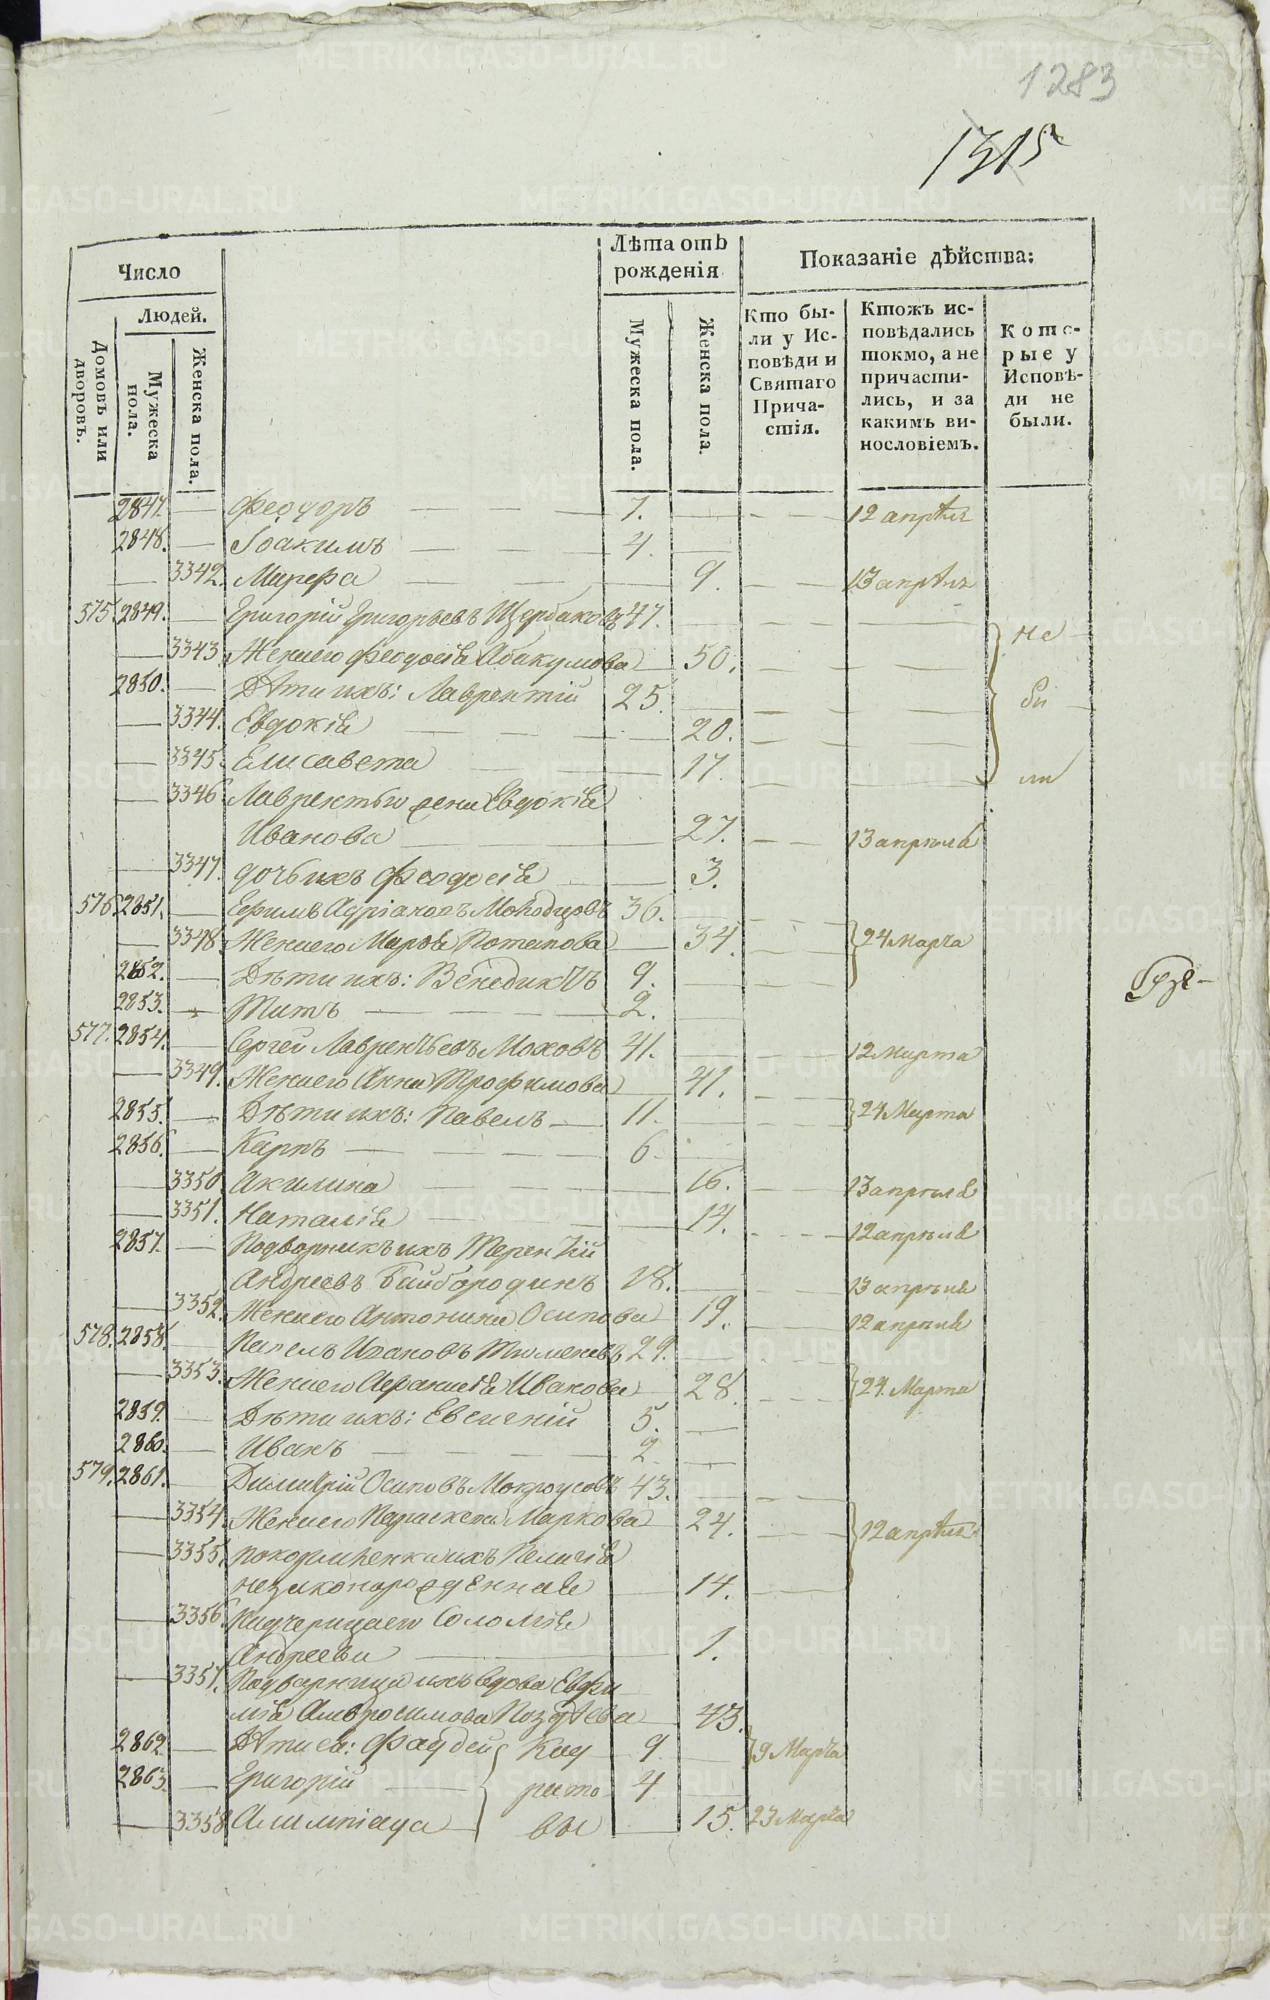 1283
1315
Число
Людей.
Домовъ или дворовъ.
Мужеска пола.
Женска пола.
Лѣта отъ рожденія
Мужеска пола.
Женска пола.
Показаніе дѣйства:
Кто бы-
ли у Ис-
повѣди и
Святаго
Прича-
стія.
Ктожъ ис-
повѣдались
токмо, а не
причасти-
лись, и за
какимъ ви-
нословіемъ.
Кото-
рые у
Исповѣ-
ди не
были.
2847. — Феодоръ — — — 7. — — — 12 апрѣля
2848. — Іоакимъ — — — 4. —
— 3342. Марѳа — — — 9. — — 13 апрѣля
575. 2849. — Григорій Григорьевъ Щербаковъ 47. — не
— 3343 Жена его Феодосія Абакумова — 50. — бы
2850. — Дѣти ихъ: Лаврентій 25. — ли
— 3344. Евдокія — — — 20.
— 3345. Елисавета — — 17.
— 3346 Лаврентья жена Евдокія
Иванова — — 27. — — 13 апрѣля
— 3347. дочь ихъ Феодосія — — 3.
576 2851. — Ефимъ Адріановъ Молодцовъ 36. —
— 3348. Жена его Марѳа Потапова — 34. — 24 Марта
2852. — Дѣти ихъ: Венедиктъ 9. —
2853. — Титъ — — — 2. —
577. 2854. — Сергей Лаврентьевъ Моховъ 41. — 12 Марта
— 3349. Жена его Анна Трофимова — 41. —
2855. — Дѣти ихъ: Павелъ — 11. — 24 Марта
2856. — Карпъ — — — 6. —
— 3350 Акилина — — — 16. — 13 апрѣля
— 3351. Наталія — — — 14. — 12 апрѣля
2857. — Подворникъ ихъ Терентій
Андреевъ Байбородинъ 18. — 13 апрѣля
— 3352. Жена его Антонина Осипова 19. — 12 апрѣля
578. 2858. — Павелъ Ивановъ Тюменевъ 29. —
— 3353. Жена его Афанасія Иванова — 28 — 24. Марта
2859. — Дѣти ихъ: Евгеній 5. —
2860. — Иванъ — — — 2 —
579. 2861. — Димитрій Осиповъ Мокроусовъ 43. —
— 3354. Жена его Параскева Маркова — 24. — 12 апрѣля
— 3355. покормленница ихъ Пелагія
незаконорожденная — 14. —
— 3356. Падчерица его Соломія
Андреева — — 1.
— 3357. Подворница ихъ вдова Евфи
мія Амвросимова Поздѣева — 43.
2862 — Дѣти ея: Фаддей Кад 9. — 9 Марта
2863. — Григорій — рато 4 —
— 3358 Алимпіада — вы — 15. 23 Марта